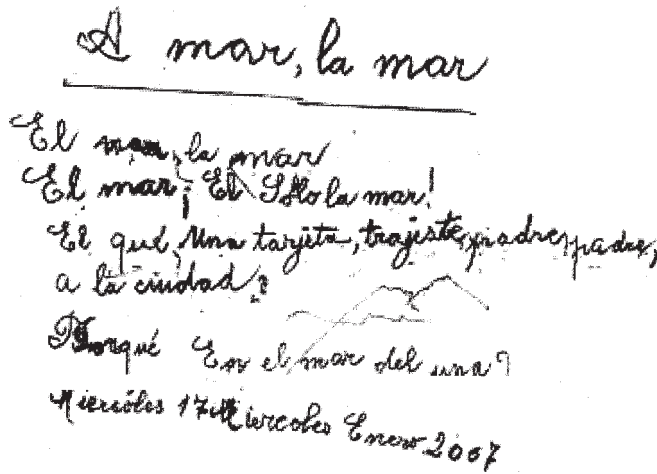 A mar, la mar
El mar, la mar
El mar ¡El Sólo la mar!
El qué, Una tarjeta, trajiste, padre, padre,
a la ciudad?
Porqué En el mar del una?
Miercóles 17 Miercoles Enero 2007